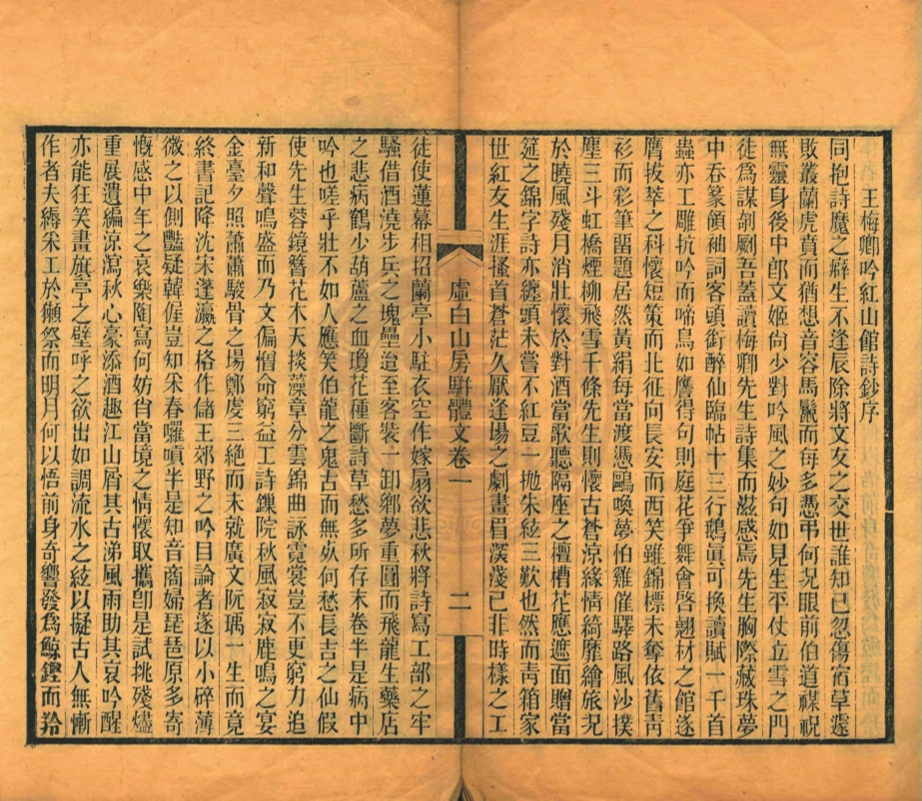 王梅卿吟紅山館詩鈔序
同抱詩魔之癖生不逢辰除將文友之交世誰知己忽傷宿草遽
敗叢蘭虎賁而猶想音容馬鬣而每多憑弔何况眼前伯道禖祝
無靈身後中郎文姬尚少對吟風之妙句如見生平仗立雪之門
徒爲謀剞劂吾蓋讀梅卿先生詩集而滋感焉先生胸際藏珠夢
中吞篆領袖詞客頭銜醉仙臨帖十三行鵝眞可換讀賦一千首
蟲亦工雕抗吟而啼鳥如譍得句則庭花爭舞會啓翹材之館遂
膺拔萃之科懷短策而北征向長安而西笑雖錦標未奪依舊靑
衫而彩筆畱題居然黃絹每當渡憑鷗喚夢怕雞催驛路風沙撲
塵三斗虹橋煙柳飛雪千條先生則懷古蒼涼緣情綺靡繪旅况
於曉風殘月消壯懷於對酒當歌聽隔座之檀槽花應遮面贈當
筵之錦字詩亦纏頭未嘗不紅豆一拋朱絃三歎也然而靑箱家
世紅友生涯搔首蒼茫久厭逢場之劇畫眉深淺已非時樣之工
虛白山房駢體文卷一
二
徒使蓮幕相招蘭亭小駐衣空作嫁扇欲悲秋將詩寫工部之牢
騷借酒澆步兵之塊壘迨至客裝一卸鄉夢重圓而飛龍生藥店
之悲病鶴少葫蘆之血瓊花種斷詩草愁多所存末卷半是病中
吟也嗟乎壯不如人應笑伯龍之鬼古而無死何愁長吉之仙假
使先生蓉鏡簪花木天掞藻草分雲錦曲詠霓裳豈不更窮力追
新和聲鳴盛而乃文偏憎命窮益工詩鏁院秋風寂寂鹿鳴之宴
金臺夕照蕭蕭駿骨之場鄭虔三絕而未就廣文阮瑀一生而竟
終書記降沈宋蓬瀛之格作儲王郊野之吟目論者遂以小碎薄
微之以側豔疑韓偓豈知朱春囉嗊半是知音商婦琵琶原多寄
慨感中年之哀樂陶寫何妨肖當境之情懷取攜卽是試挑殘燼
重展遺編涼瀉秋心豪添酒趣江山屑其古涕風雨助其哀吟醒
亦能狂笑畫旗亭之壁呼之欲出如調流水之絃以擬古人無慚
作者夫縟朱工於獺祭而明月何以悟前身奇響發爲鯨鏗而羚